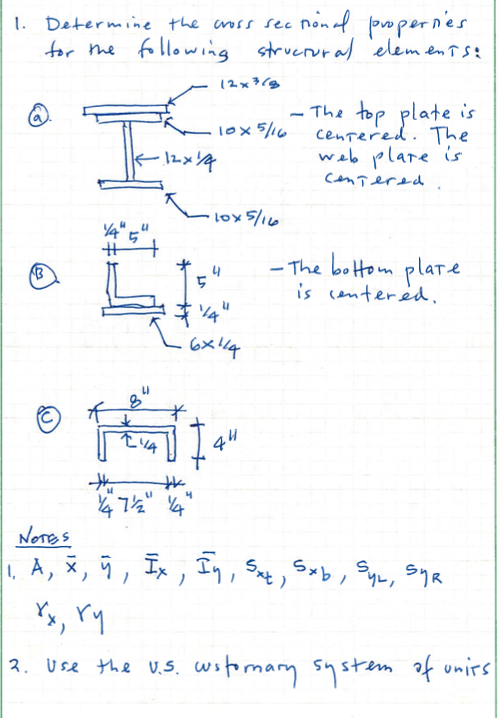 1. Determine the cross sectional properties
for the following structural elements:
12x3/8
(a).
- The top plate is
10x5/16
centered. The
12x1/4
web plate is
centered.
10x5/16
1/4" 5"
(B).
5"
- The bottom plate
is centered.
1/4"
6x1/4
(C)
8"
1/4
4"
1/4" 7 1/2" 1/4"
NOTES
1. A, x̄, ȳ, Īx, Īy, Sxt, Sxb, SyL, SyR
rx, ry
2. Use the U.S. customary system of units